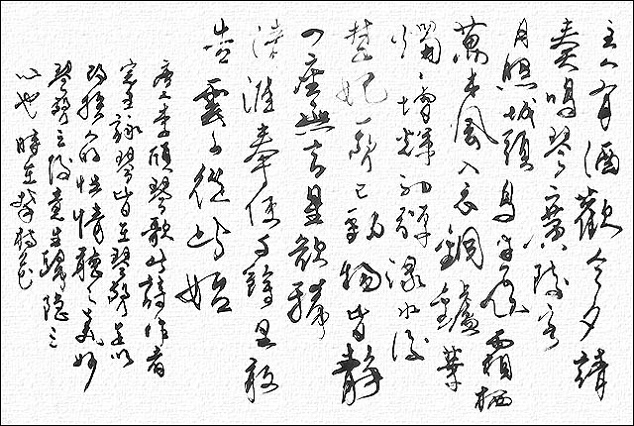 主人有酒歡今夕請
奏鳴琴廣陵客
月照城頭烏半飛霜
萬木風入衣銅鑪華
燭燭增輝初彈淥水後
楚妃一聲已動物皆靜
四座無言星欲稀
清淮奉使千餘里敢
告雲山從此始
唐李頎琴歌此詩作者
完全詠琴皆在琴聲是以
人的性情聽之美妙
琴聲之後意生歸隱之
心也時在